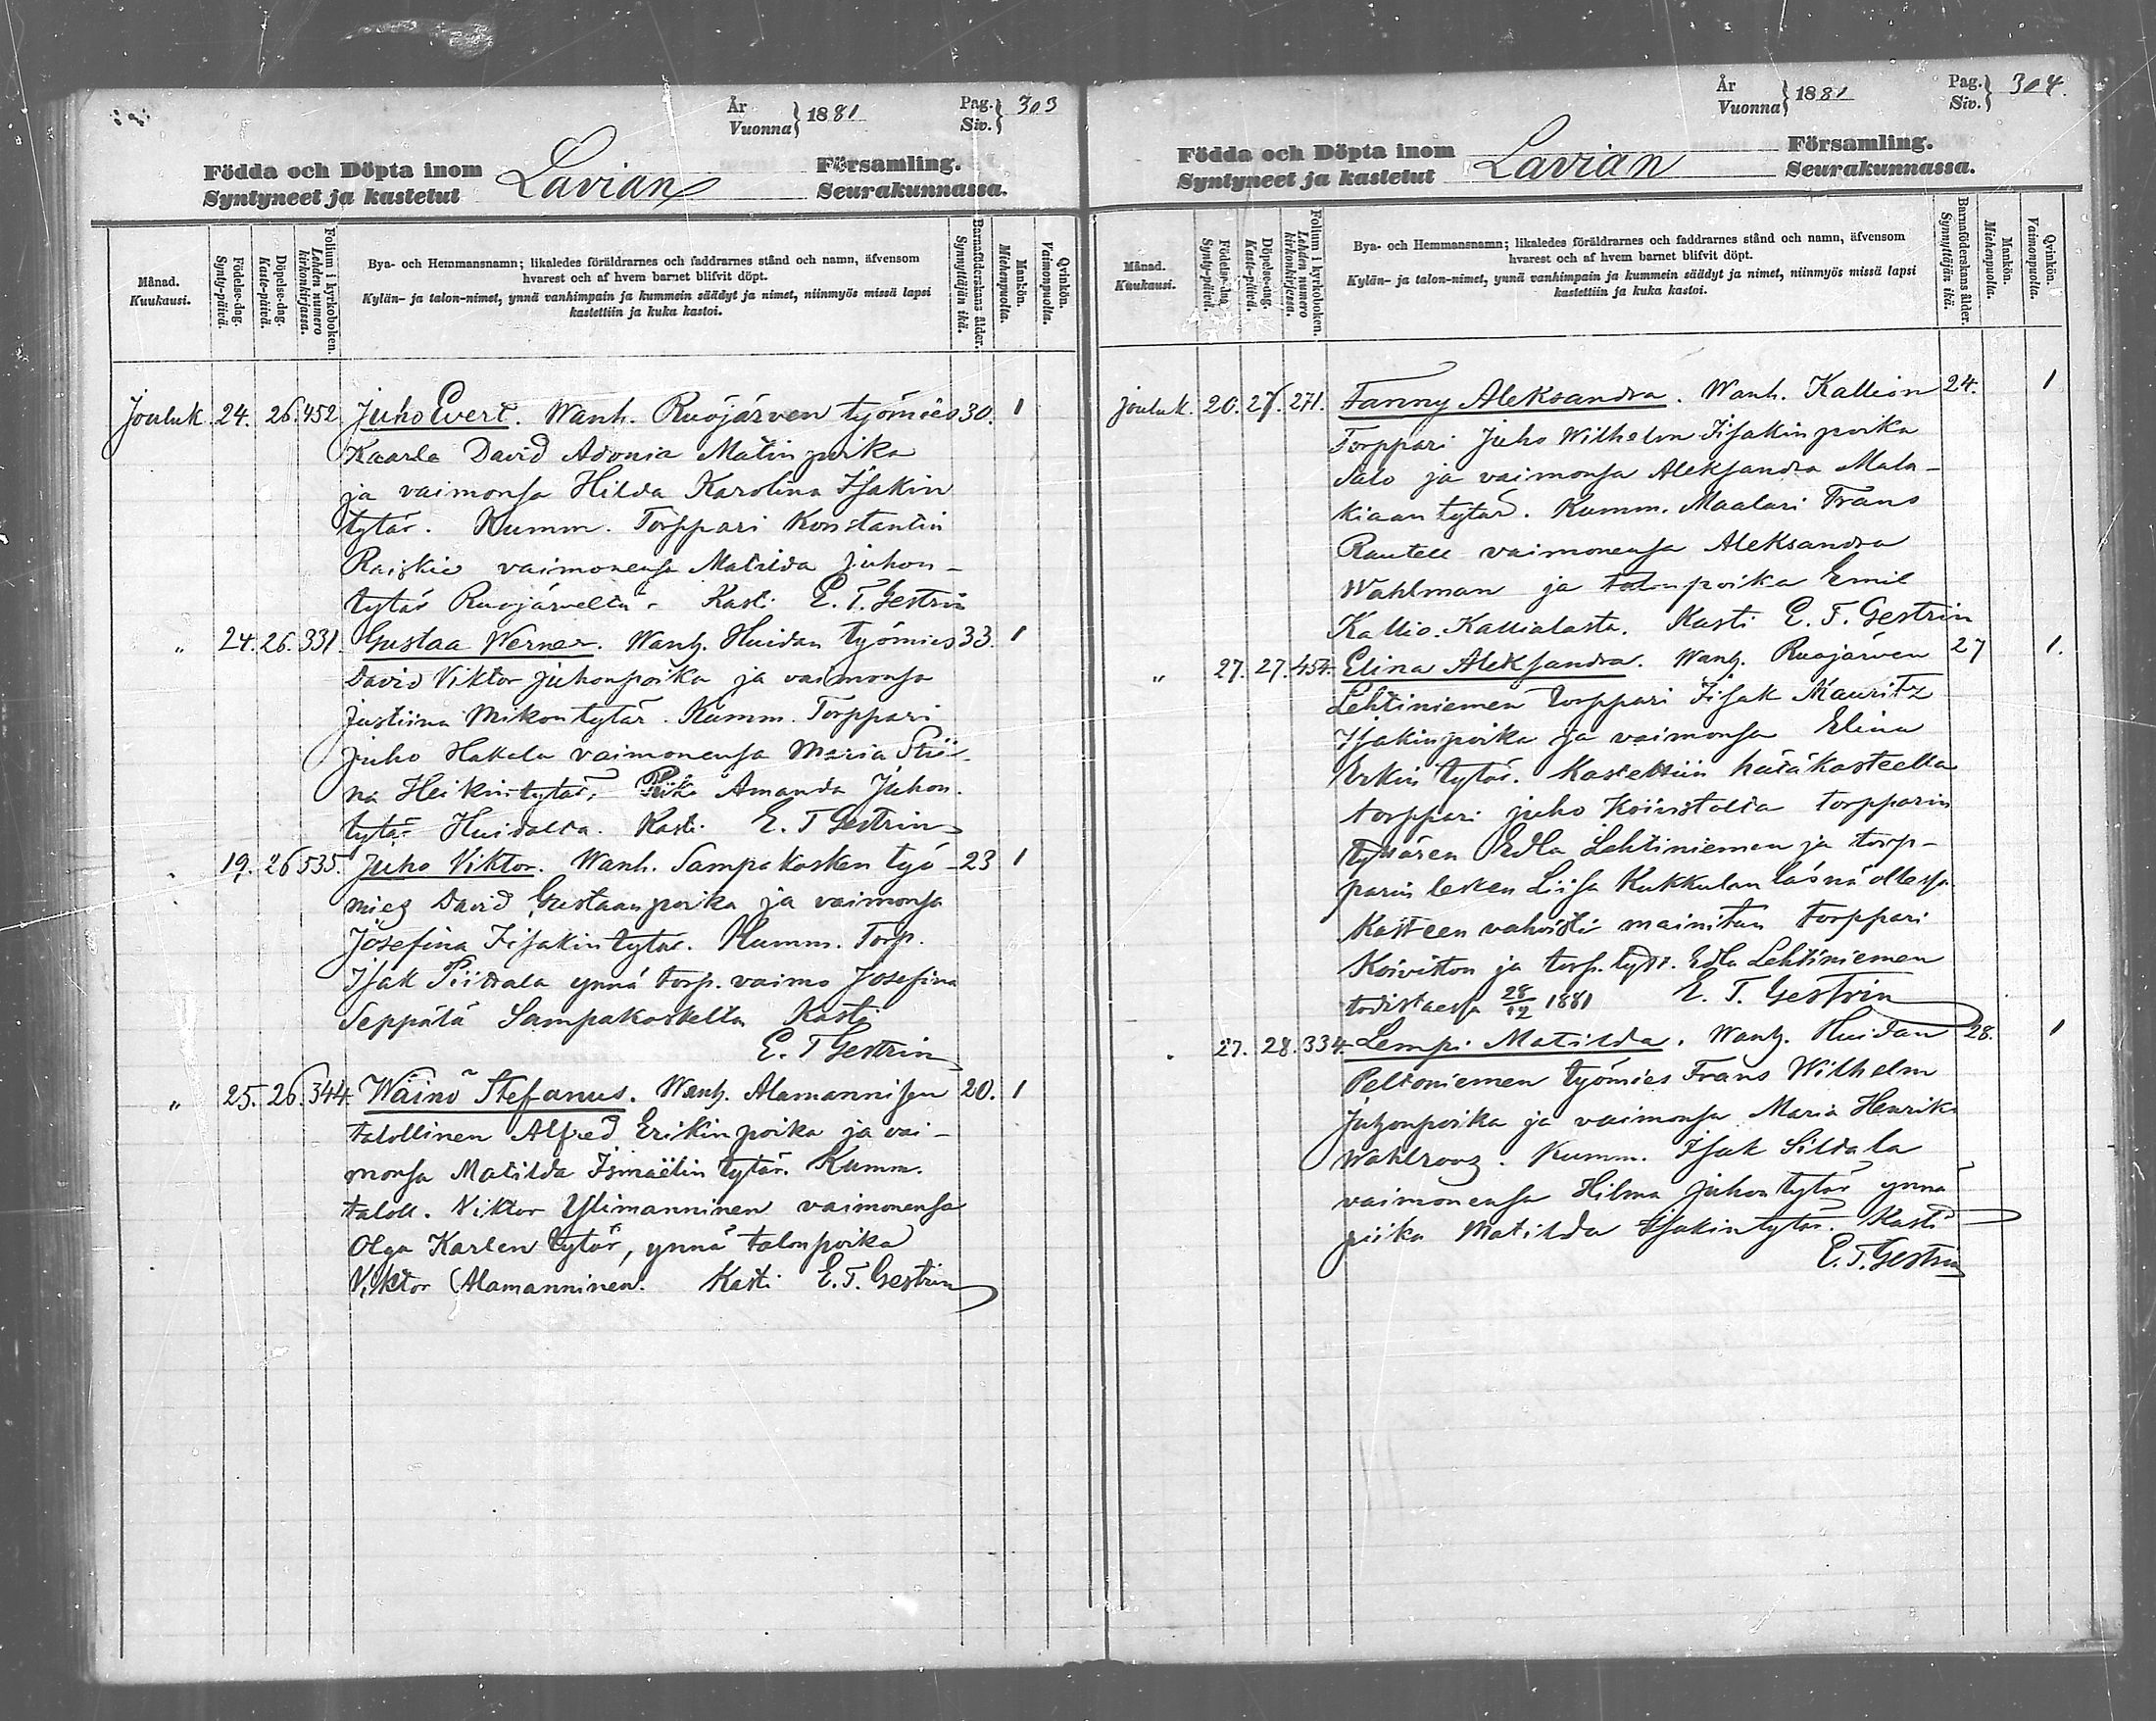 År
Vuonna} 1881
Pag.
Siv.} 303
Födda och Döpta inom
Syntyneet ja kastetut
Lavian
Församling.
Seurakunnassa.
Månad.
Kuukausi.
Födelse-dag.
Synty-päivä.
Döpelse-dag.
Kaste-päivä.
Folium i kyrkoboken.
Lehden numero kirkonkirjassa.
Bya- och Hemmansnamn; likaledes föräldrarnes och faddrarnes stånd och namn, äfvensom
hvarest och af hvem barnet blifvit döpt.
Kylän- ja talon-nimet, ynnä vanhimpain ja kummein säädyt ja nimet, niinmyös missä lapsi
kastettiin ja kuka kastoi.
Barnaföderskans ålder.
Synnyttäjän ikä.
Mankön.
Miehenpuolta.
Qvinkön.
Vaimonpuolta.
Jouluk. 24. 26. 452. Juho Evert. Wanh. Ruojärven työmies 30. 1
Kaarle David Adonia Matinpoika
ja vaimonsa Hilda Karolina Isakin
tytär. Kumm. Torppari Konstantin
Raiskio vaimonensa Matilda Juhon-
tytär Ruojärveltä. Kasti E. T. Gestrin
" 24. 26. 331. Gustaa Werner. Wanh. Huidan työmies 33. 1
David Viktor Juhonpoika ja vaimonsa
Justiina Mikontytär. Kumm. Torppari
Juho Hakala vaimonensa Maria Stii-
na Heikintytär, Piika Amanda Juhon-
tytär Huidalta. Kasti E. T Gestrin
" 19. 26 535. Juho Viktor. Wanh. Sampakosken työ- 23 1
mies David Gustaanpoika ja vaimonsa
Josefina Iisakintytär. Kumm. Torp.
Isak Piittala ynnä torp. vaimo Josefina
Seppälä Sampakoskelta Kasti
E. T Gestrin
" 25. 26. 344. Wäinö Stefanus. Wanh. Alamannisen 20. 1
talollinen Alfred Erikinpoika ja vai-
monsa Matilda Ismaëlin tytär. Kumm.
taloll. Viktor Ylimanninen vaimonensa
Olga Karlen tytär, ynnä talonpoika
Viktor Alamanninen. Kasti E. T. Gestrin
År
Vuonna} 1881
Pag.
Siv.} 304.
Födda och Döpta inom
Syntyneet ja kastetut
Lavian
Församling.
Seurakunnassa.
Månad.
Kuukausi.
Födelse-dag.
Synty-päivä.
Döpelse-dag.
Kaste-päivä.
Folium i kyrkoboken.
Lehden numero kirkonkirjassa.
Bya- och Hemmansnamn; likaledes föräldrarnes och faddrarnes stånd och namn, äfvensom
hvarest och af hvem barnet blifvit döpt.
Kylän- ja talon-nimet, ynnä vanhimpain ja kummein säädyt ja nimet, niinmyös missä lapsi
kastettiin ja kuka kastoi.
Barnaföderskans ålder.
Synnyttäjän ikä.
Mankön.
Miehenpuolta.
Qvinkön.
Vaimonpuolta.
Jouluk. 20. 27. 271. Fanny Aleksandra. Wanh. Kallion 24. 1
Torppari Juho Wilhelm Iisakinpoika
Salo ja vaimonsa Aleksandra Mala-
kiaan tytär. Kumm. Maalari Frans
Rautell vaimonensa Aleksandra
Wahlman ja talonpoika Emil
Kallio. Kallialasta. Kasti E. T. Gestrin
" 27. 27. 454. Elina Aleksandra. Wanh. Ruojärven 27 1.
Lehtiniemen torppari Iisak Mauritz
Isakinpoika ja vaimonsa Elina
Erkin tytär. Kastettiin hätäkasteella
torppari Juho Koivistolta torpparin
tyttären Edla Lehtiniemen ja torp-
parin lesken Liisa Kukkulan läsnä ollessa
Kasteen vahvisti mainitun torppari
Koiviston ja torp. tytt. Edla Lehtiniemen
todistaessa 28/12 1881 E. T. Gestrin
" 27. 28. 334. Lempi Matilda. Wanh. Huidan 28. 1
Peltoniemen työmies Frans Wilhelm
Juhonpoika ja vaimonsa Maria Henrika
Wahlroos. Kumm. Isak Siltala
vaimonensa Hilma Juhontytär ynnä
piika Matilda Isakintytär. Kasti
E. T. Gestrin